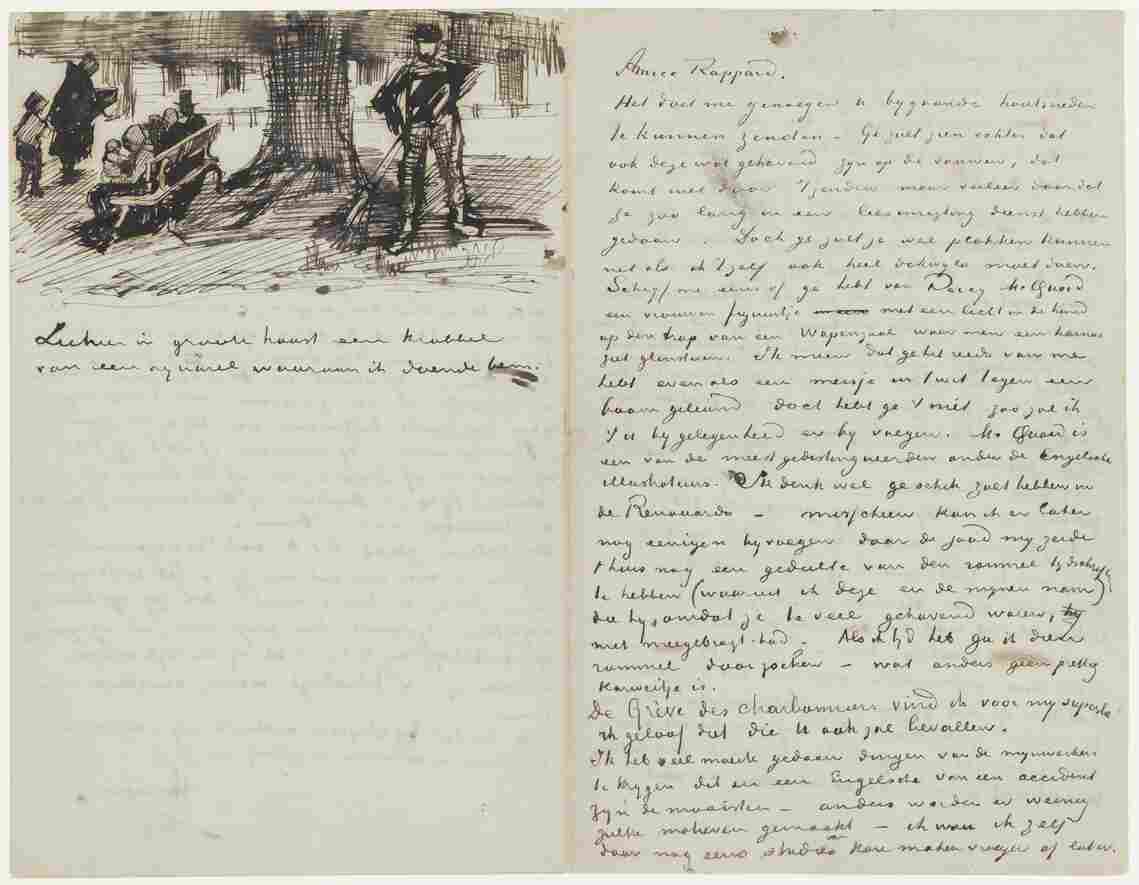 Amice Rappard.
Het doet me genoegen U bygaande houtsneden
te kunnen zenden – Ge zult zien echter dat
ook deze wat gehavend zyn op de vouwen, dat
komt niet door 't zenden maar veeleer doordat
ze zoo lang in een leesinrigting dienst hebben
gedaan. Doch ge zult ze wel plakken kunnen
net als ik 'tzelf ook heel dikwyls moet doen.
Schryf me eens of ge hebt van Percy Mc Quoid
een vrouwen figuurtje met een licht in de hand
op den trap van een Wapenzaal waar men een harnas
ziet glinsteren. Ik meen dat ge het reeds van me
hebt evenals een meisje in 't wit tegen een
boom geleund doch hebt ge 't niet zoo zal ik
't U by gelegenheid er by voegen. Mc Quoid is
een van de meest gedistingueerden onder de Engelsche
illustrateurs. Ik denk wel ge schik zult hebben in
de Renouards – misschien kan ik er later
nog eenigen byvoegen daar de jood my zeide
thuis nog een gedeelte van den rommel tydschrift
te hebben (waaruit ik deze en de mynen nam)
die hy, omdat ze te veel gehavend waren,
niet meegebragt had. Als ik tyd heb ga ik dien
rommel doorzoeken – wat anders geen prettig
karweitje is.
De Grève des charbonniers vind ik voor my superbe
ik geloof dat die U ook zal bevallen.
Ik heb veel moeite gedaan dingen van de mynwerkers
te krygen dit en een Engelsche van een accident
zyn de mooisten – anders worden er weinig
zulke motieven gemaakt – ik wou ik zelf
daar nog eens studies kon maken vroeger of later.
Ziehier in groote haast een krabbel
van een aquarel waaraan ik doende ben.